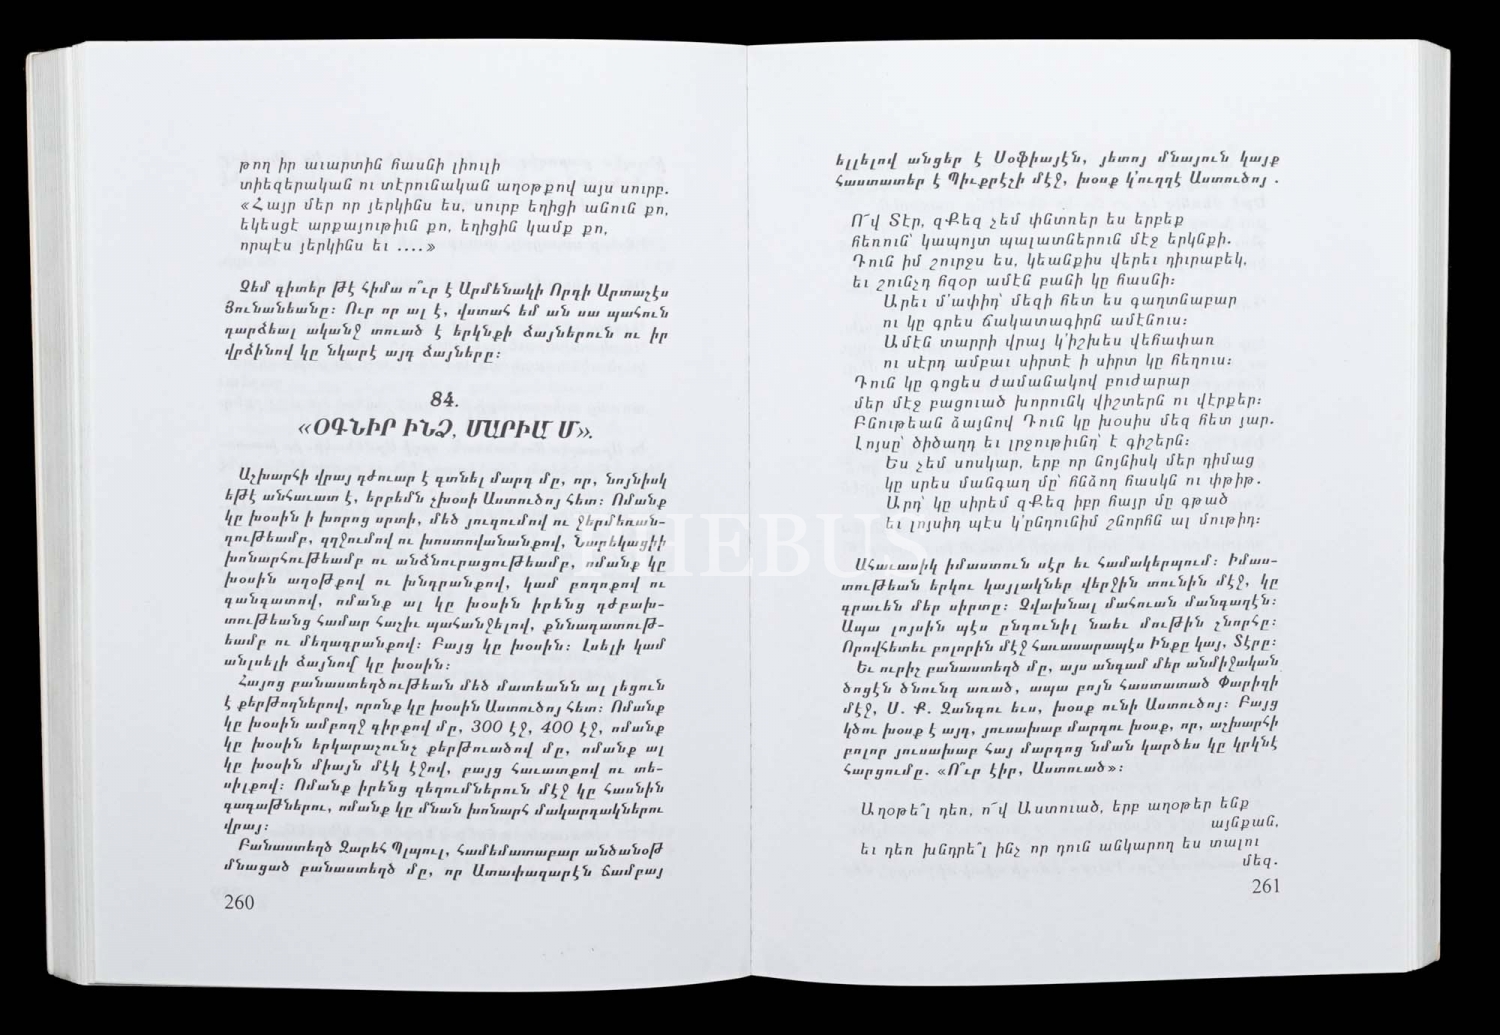 թող իր աւարտին հասնի լիուլի
տիեզերական ու տէրունական աղօթքով այս սուրբ.
«Հայր մեր որ յերկինս ես, սուրբ եղիցի անուն քո,
եկեսցէ արքայութիւն քո, եղիցին կամք քո,
որպէս յերկինս եւ ....»
Չեմ գիտեր թէ հիմա ո՞ւր է Արմենակի Որդի Արտաշէս
Յունանեանը: Ուր որ ալ է, վստահ եմ ան սա պահուն
դարձեալ ականջ տուած է երկնքի ձայներուն ու իր
վրձինով կը նկարէ այդ ձայները:
84.
«ՕԳՆԻՐ ԻՆՁ, ՄԱՐԻԱՄ».
Աշխարհի վրայ դժուար է գտնել մարդ մը, որ, նոյնիսկ
եթէ անհաւատ է, երբեմն չխօսի Աստուծոյ հետ: Ոմանք
կը խօսին ի խորոց սրտի, մեծ յուզումով ու ջերմեռան-
դութեամբ, զղջումով ու խոստովանանքով, Նարեկացիի
խոնարհութեամբ ու անձնուրացութեամբ, ոմանք կը
խօսին աղօթքով ու խնդրանքով, կամ բողոքով ու
գանգատով, ոմանք ալ կը խօսին իրենց դժբախ-
տութեանց համար հաշիւ պահանջելով, քննադատութ-
եամբ ու մեղադրանքով: Բայց կը խօսին: Լսելի կամ
անլսելի ձայնով կը խօսին:
Հայոց բանաստեղծութեան մեծ մատեանն ալ լեցուն
է քերթողներով, որոնք կը խօսին Աստուծոյ հետ: Ոմանք
կը խօսին ամբողջ գիրքով մը, 300 էջ, 400 էջ, ոմանք
կը խօսին երկարաշունչ քերթուածով մը, ոմանք ալ
կը խօսին միայն մէկ էջով, բայց հաւատքով ու տե-
սիլքով: Ոմանք իրենց զեղումներուն մէջ կը հասնին
գագաթներու, ոմանք կը մնան խոնարհ մակարդակներու
վրայ:
Բանաստեղծ Զարեհ Պլպուլ, համեմատաբար անծանօթ
մնացած բանաստեղծ մը, որ Ատափազարէն ճամբայ
260
ելլելով անցեր է Սօֆիայէն, յետոյ մնայուն կայք
հաստատեր է Պիւքրէշի մէջ, խօսք կ'ուղղէ Աստուծոյ .
Ո՜վ Տէր, զՔեզ չեմ փնտռեր ես երբեք
հեռուն՝ կապոյտ պալատներուն մէջ երկնքի.
Դուն իմ շուրջս ես, կեանքիս վերեւ դիւրաբեկ,
եւ շունչդ հզօր ամէն բանի կը հասնի:
Արեւ մ'ափիդ՝ մեզի հետ ես գաղտնաբար
ու կը գրես ճակատագիրն ամէնուս:
Ամէն տարրի վրայ կ'իշխես վեհափառ
ու սէրդ ամբաւ սիրտէ ի սիրտ կը հեղուս:
Դուն կը գոցես ժամանակով բուժարար
մեր մէջ բացուած խորունկ վիշտերն ու վէրքեր:
Բնութեան ձայնով Դուն կը խօսիս մեզ հետ յար.
Լոյսը՝ ծիծաղդ եւ լրջութիւնդ՝ է գիշերն:
Ես չեմ սոսկար, երբ որ նոյնիսկ մեր դիմաց
կը սրես մանգաղ մը՝ հնձող հասկն ու փթիթ.
Արդ՝ կը սիրեմ զՔեզ իբր հայր մը գթած
եւ լոյսիդ պէս կ'ընդունիմ շնորհն ալ մութիդ:
Ահաւասիկ իմաստուն սէր եւ համակերպում: Իմաս-
տութեան երկու կայլակներ վերջին տունին մէջ, կը
գրաւեն մեր սիրտը: Չվախնալ մահուան մանգաղէն:
Ապա լոյսին պէս ընդունիլ նաեւ մութին շնորհը:
Որովհետեւ բոլորին մէջ հաւասարապէս Ինքը կայ, Տէրը:
Եւ ուրիշ բանաստեղծ մը, այս անգամ մեր անմիջական
ծոցէն ծնունդ առած, ապա բոյն հաստատած Փարիզի
մէջ, Մ. Ք. Զանգու եւս, խօսք ունի Աստուծոյ: Բայց
կծու խօսք է այդ, յուսախաբ մարդու խօսք, որ, աշխարհի
բոլոր յուսախաբ հայ մարդոց նման կարծես կը կրկնէ
հարցումը. «Ո՞ւր էիր, Աստուած»:
Աղօթե՞լ դեռ, ո՜վ Աստուած, երբ աղօթեր ենք
այնքան,
եւ դեռ խնդրե՞լ ինչ որ դուն անկարող ես տալու
մեզ.
261
PHEBUS